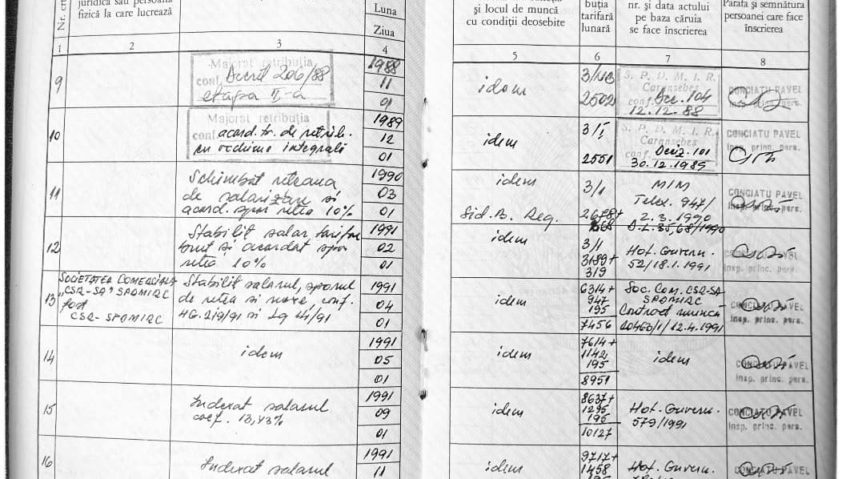 juridică sau persoana
fizică la care lucrează
Nr. crt
Luna
Ziua
1 2 3 4
9
Majorat retribuția
conf. Decret 206/88
etapa II-a
1988
11
01
10
Majorat retribuția
conf. acord. tr. de retrib.
cu vechime integrală
1989
12
01
11
Schimbat
de salarizare și
acord. spor 10%
1990
03
01
12
Stabilit salar
brut și acordat spor
10%
1991
02
01
13
SOCIETATEA COMERCIALĂ
"CSR-SA" SPOMIRC
fost
CSR-SPOMIRC
Stabilit salariul, sporul
de și nave, conf.
HG. 219/91 și Lg 14/91
1991
04
01
14
idem
1991
05
01
15
Indexat salariul
coef. 13,43%
1991
09
01
16
Indexat salariul
1991
11
și locul de muncă
cu condiții deosebite
buția
tarifară
lunară
nr. și data actului
pe baza căruia
se face înscrierea
Parafa și semnătura
persoanei care face
înscrierea
5 6 7 8
idem
S. P. D. M. I. R.
Caransebeș
Dec. 104
12.12.88
CONCIATU PAVEL
Insp. princ. pers.
idem
3/1
2551
S. P. D. M. I. R.
Caransebeș
conf. Deciz. 101
30.12.1989
CONCIATU PAVEL
Insp. princ. pers.
idem
3/1
2678+
268
MIM
Telex. 947/
2.3.1990
CONCIATU PAVEL
Insp. princ. pers.
idem
3/1
3189+
319
Hot. Guvern.
52/18.1.1991
CONCIATU PAVEL
Insp. princ. pers.
idem
6314+
947
195
7456
Soc. Com. CSR-SA
SPOMIRC
Contract muncă
20460/1/12.4.1991
CONCIATU PAVEL
Insp. princ. pers.
idem
7614+
1142
195
8951
idem
CONCIATU PAVEL
Insp. princ. pers.
idem
8637+
1295
195
10127
Hot. Guvern.
579/1991
CONCIATU PAVEL
Insp. princ. pers.
idem
9717+
1458
195
Hot. Guvern.
CONCIATU PAVEL
Insp. princ. pers.